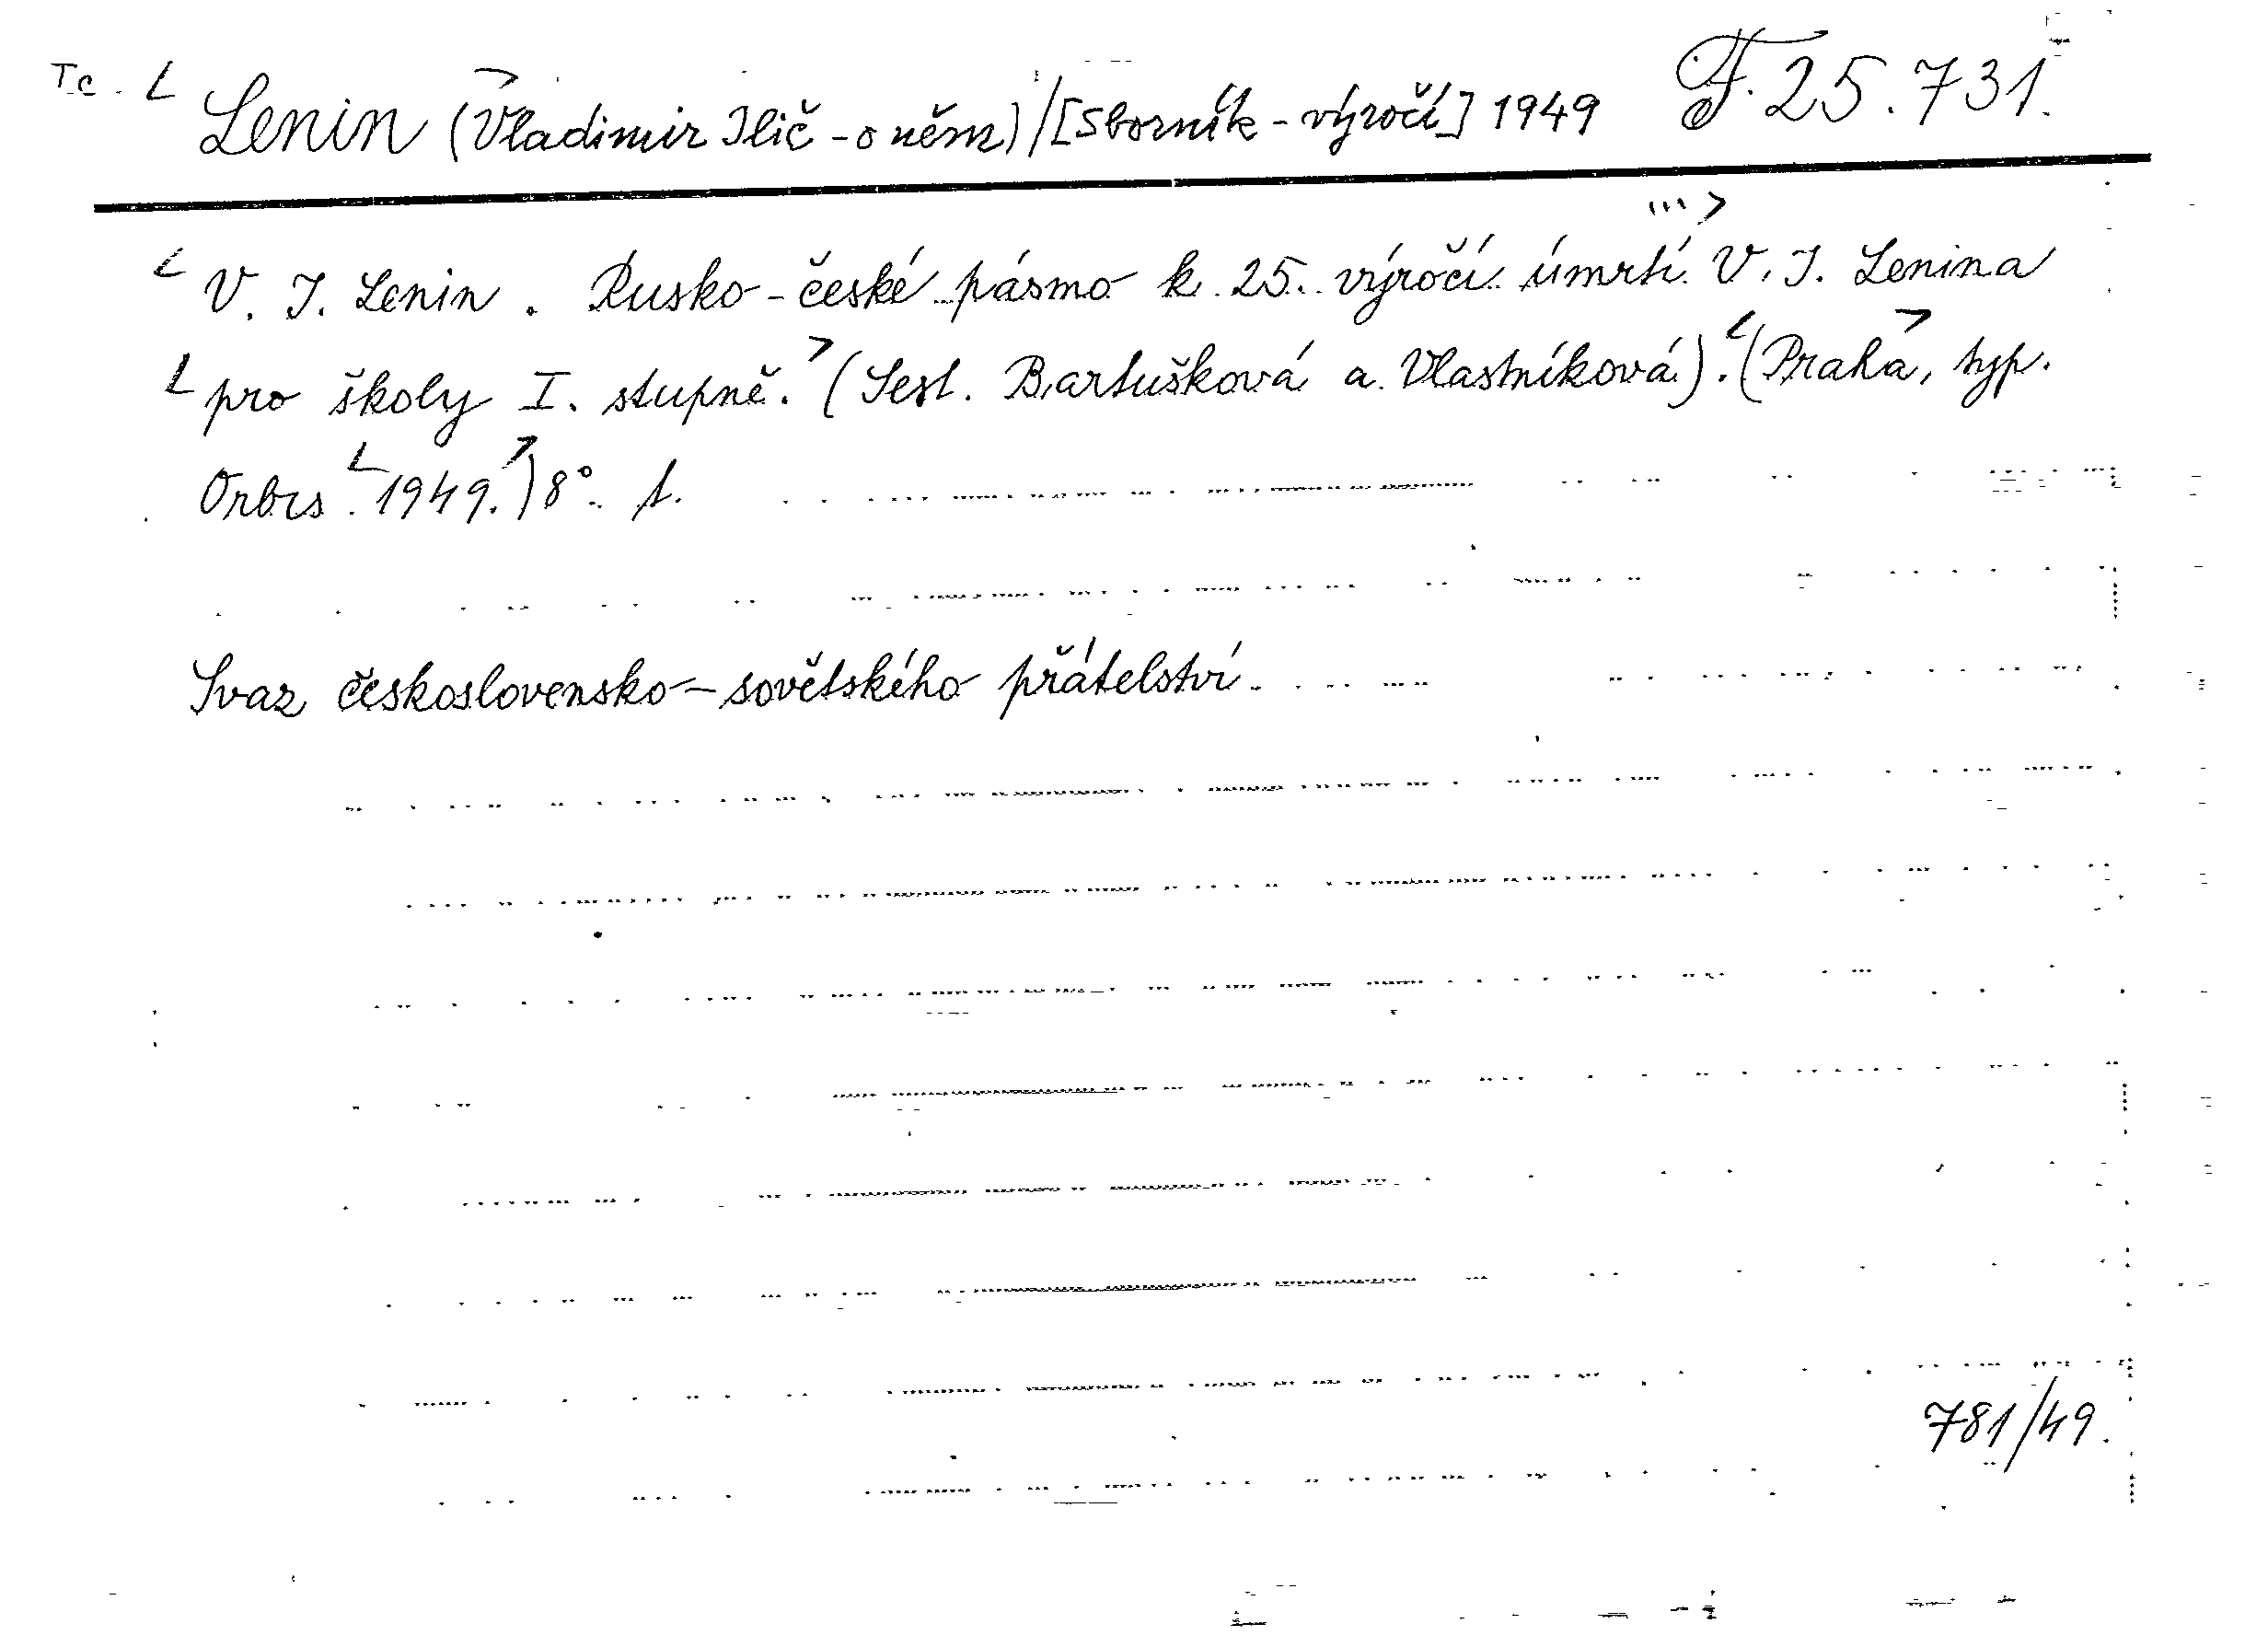 Tc. Lenin (Vladimir Ilič - o něm) / [Sborník - výročí] 1949 F. 25.731.
V. I. Lenin. Rusko-české pásmo k 25. výročí úmrtí V. I. Lenina
pro školy I. stupně. (Sest. Bartušková a Vlastníková). (Praha, typ.
Orbis 1949.) 8°. f.
Svaz československo-sovětského přátelství.
781/49.